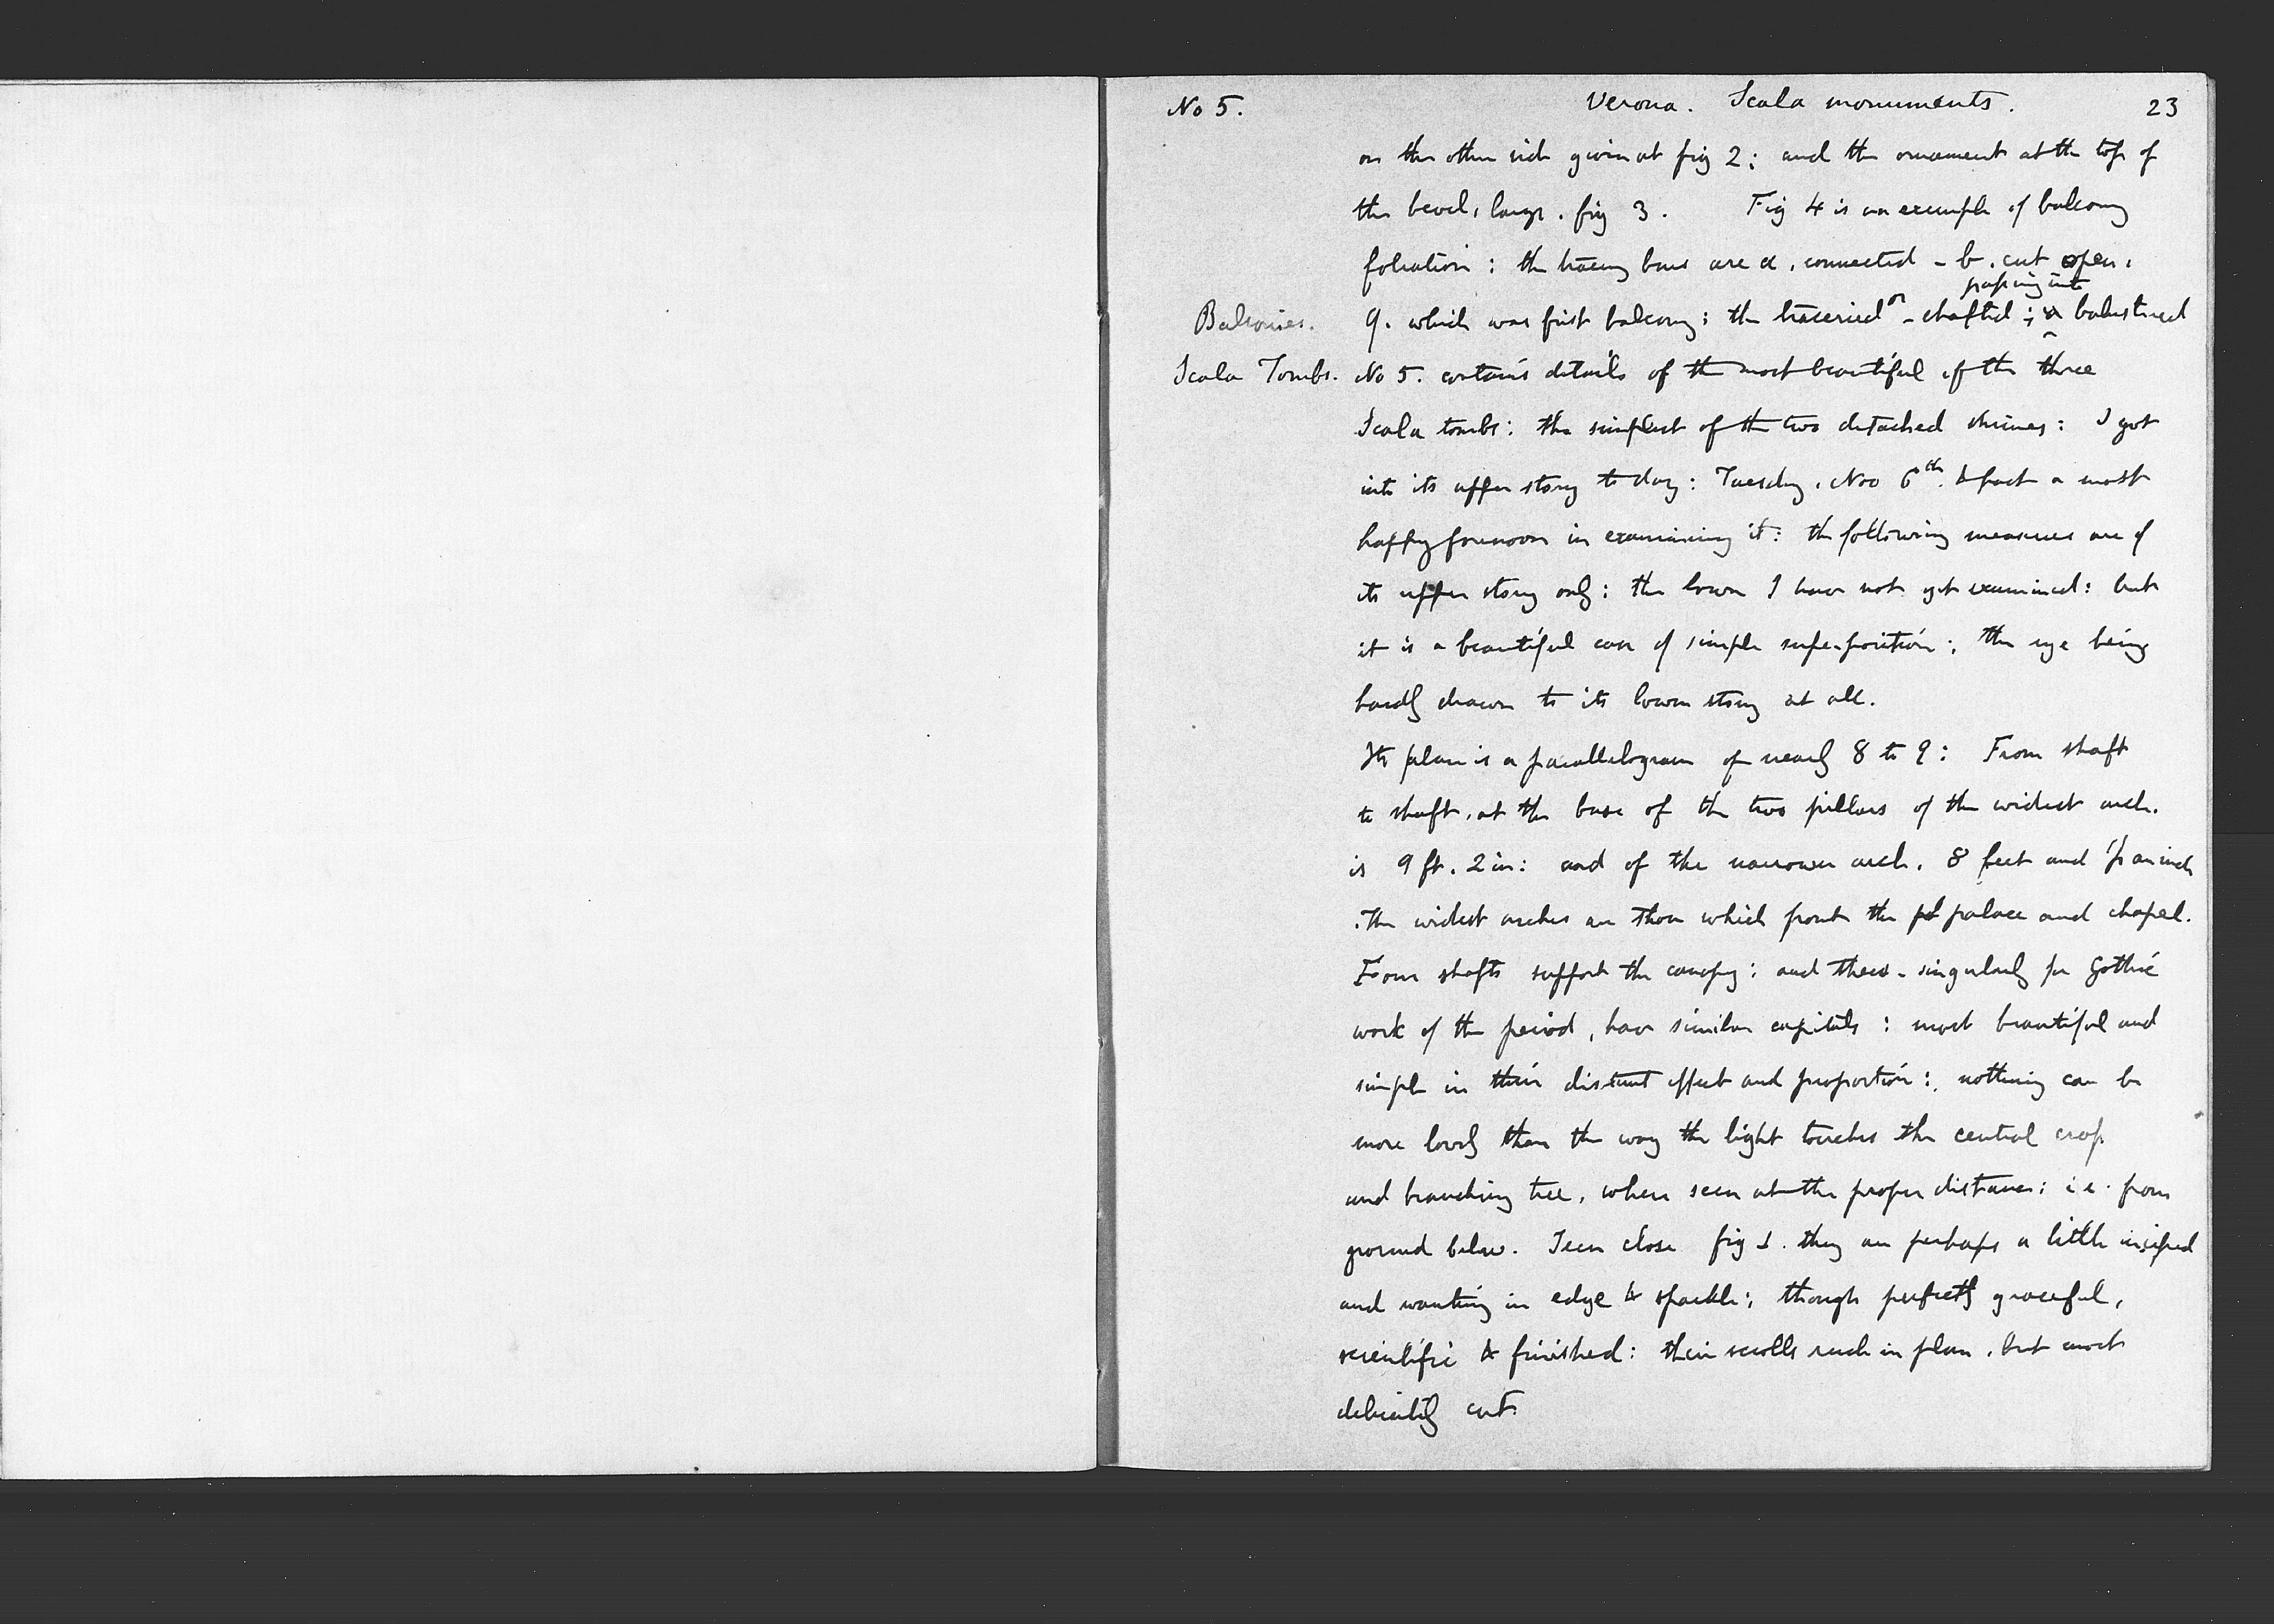 No 5. Verona. Scala monuments. 23
on the other side given at fig 2; and the ornament at the top of
the bevel, large. fig 3. Fig 4 is an example of balcony
foliation: the tracery bars are a, connected - b. cut open.
passing into
Balconies. Q. which was first balcony; the traceried or - shafted; a balustred
Scala Tombs. No 5. contains details of the most beautiful of the three
Scala tombs: the simplest of the two detached shrines: I got
into its upper story to day: Tuesday. Nov 6th. & past a most
happy forenoon in examining it: the following measures are of
its upper story only: the lower I have not yet examined: but
it is a beautiful case of simple superposition; the eye being
hardly drawn to its lower story at all.
Its plan is a parallelogram of nearly 8 to 9: From shaft
to shaft, at the base of the two pillars of the widest arch.
is 9 ft. 2 in: and of the narrower arch. 8 feet and an inch
The widest arches are those which front the palace and chapel.
Four shafts support the canopy: and these - singularly for Gothic
work of the period, have similar capitals: most beautiful and
simple in their distant effect and proportion: nothing can be
more lovely than the way the light touches the central crop
and branching tree, when seen at the proper distance: i.e. from
ground below. Seen close fig 1. they are perhaps a little insipid
and wanting in edge & sparkle; though perfectly graceful,
scientific & finished: their scrolls rude in plan. but most
delicately cut.